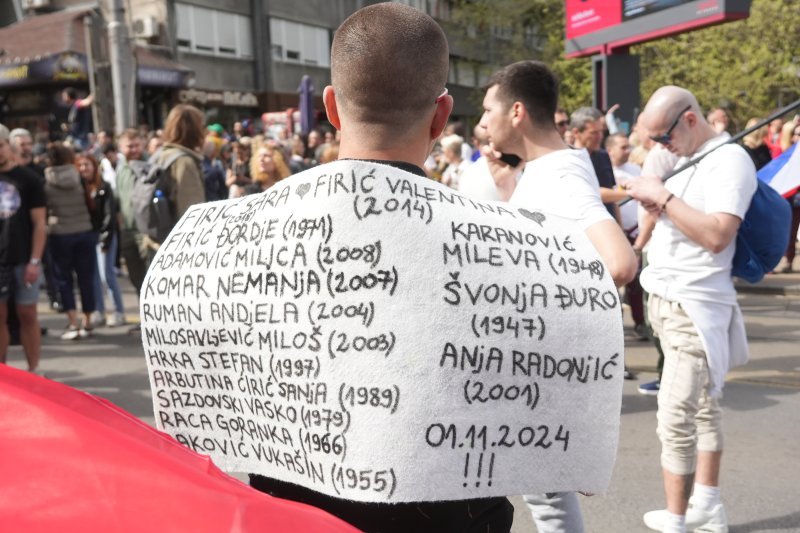 FIRIĆ SARA
(2018)
FIRIĆ VALENTINA
(2014)
FIRIĆ ĐORDJE (1971)
ADAMOVIĆ MILJCA (2008)
KOMAR NEMANJA (2007)
RUMAN ANDJELA (2004)
MILOSAVLJEVIĆ MILOŠ (2003)
HRKA STEFAN (1997)
ARBUTINA ĆIRIĆ SANJA (1989)
SAZDOVSKI VAŠKO (1979)
RACA GORANKA (1966)
RAKOVIĆ VUKAŠIN (1955)
KARANOVIĆ
MILEVA (1948)
ŠVONJA ĐURO
(1947)
ANJA RADONJIĆ
(2001)
01.11.2024
!!!